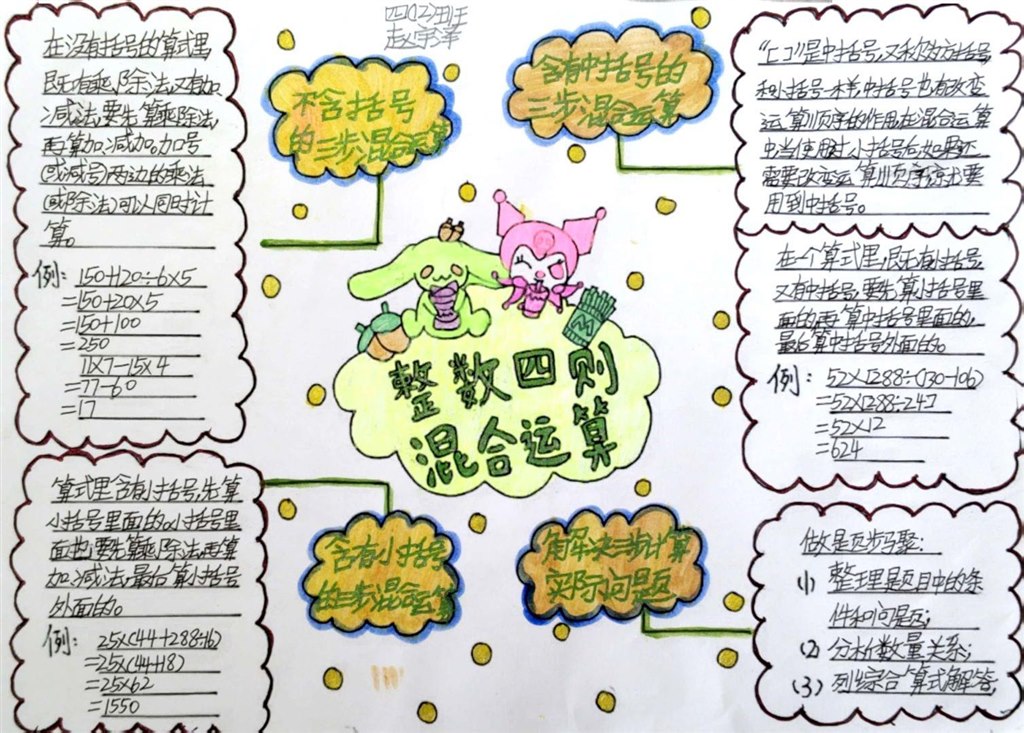 四(2)班
赵宇泽
不含括号
的三步混合运算
在没有括号的算式里,
既有乘、除法,又有加、
减法,要先算乘除法,
再算加、减加。加号
(或减号)两边的乘法
(或除法)可以同时计
算。
例:150+120÷6×5
=150+20×5
=150+100
=250
11×7-15×4
=77-60
=17
含有中括号的
三步混合运算
“[ ]”是中括号,又称为方括号,
和小括号一样,中括号也有改变
运算顺序的作用,在混合运算
中,当使用过小括号后,如果还
需要改变运算顺序,就要
用到中括号。
在一个算式里,既有小括号,
又有中括号,要先算小括号里
面的,再算中括号里面的,
最后算中括号外面的。
例:52×[288÷(130-106)
=52×[288÷24]
=52×12
=624
整数四则
混合运算
含有小括号
的三步混合运算
算式里含有小括号,先算
小括号里面的。小括号里
面也要先算乘、除法,再算
加、减法,最后算小括号
外面的。
例:25×(44+288÷16)
=25×(44+18)
=25×62
=1550
解决三步计算
实际问题
做题步骤:
(1) 整理题目中的条
件和问题;
(2) 分析数量关系;
(3) 列综合算式解答,